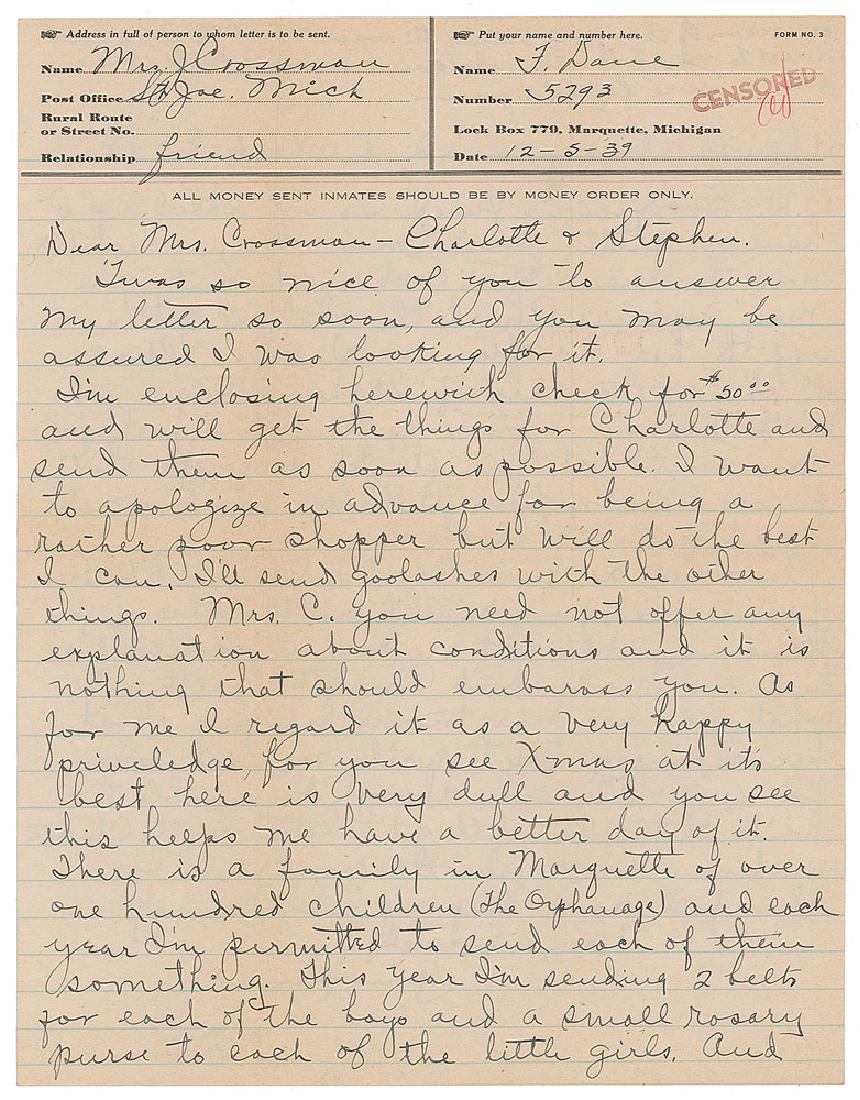 Address in full of person to whom letter is to be sent.
Name Mrs. J Crossman
Post Office St. Joe. Mich
Rural Route
or Street No.
Relationship friend
Put your name and number here.
FORM NO. 3
Name F. Dane
Number 5293
CENSORED
Lock Box 779, Marquette, Michigan
Date 12-5-39
ALL MONEY SENT INMATES SHOULD BE BY MONEY ORDER ONLY.
Dear Mrs. Crossman - Charlotte & Stephen.
'Twas so nice of you to answer
my letter so soon, and you may be
assured I was looking for it.
I'm enclosing herewith check for $50.00
and will get the things for Charlotte and
send them as soon as possible. I want
to apologize in advance for being a
rather poor shopper but will do the best
I can. I'll send goolashes with the other
things. Mrs. C. you need not offer any
explanation about conditions and it is
nothing that should embarass you. As
for me I regard it as a very happy
priveledge, for you see Xmas at it's
best here is very dull and you see
this helps me have a better day of it.
There is a family in Marquette of over
one hundred children (The Orphanage) and each
year I'm permitted to send each of them
something. This year I'm sending 2 belts
for each of the boys and a small rosary
purse to each of the little girls. And